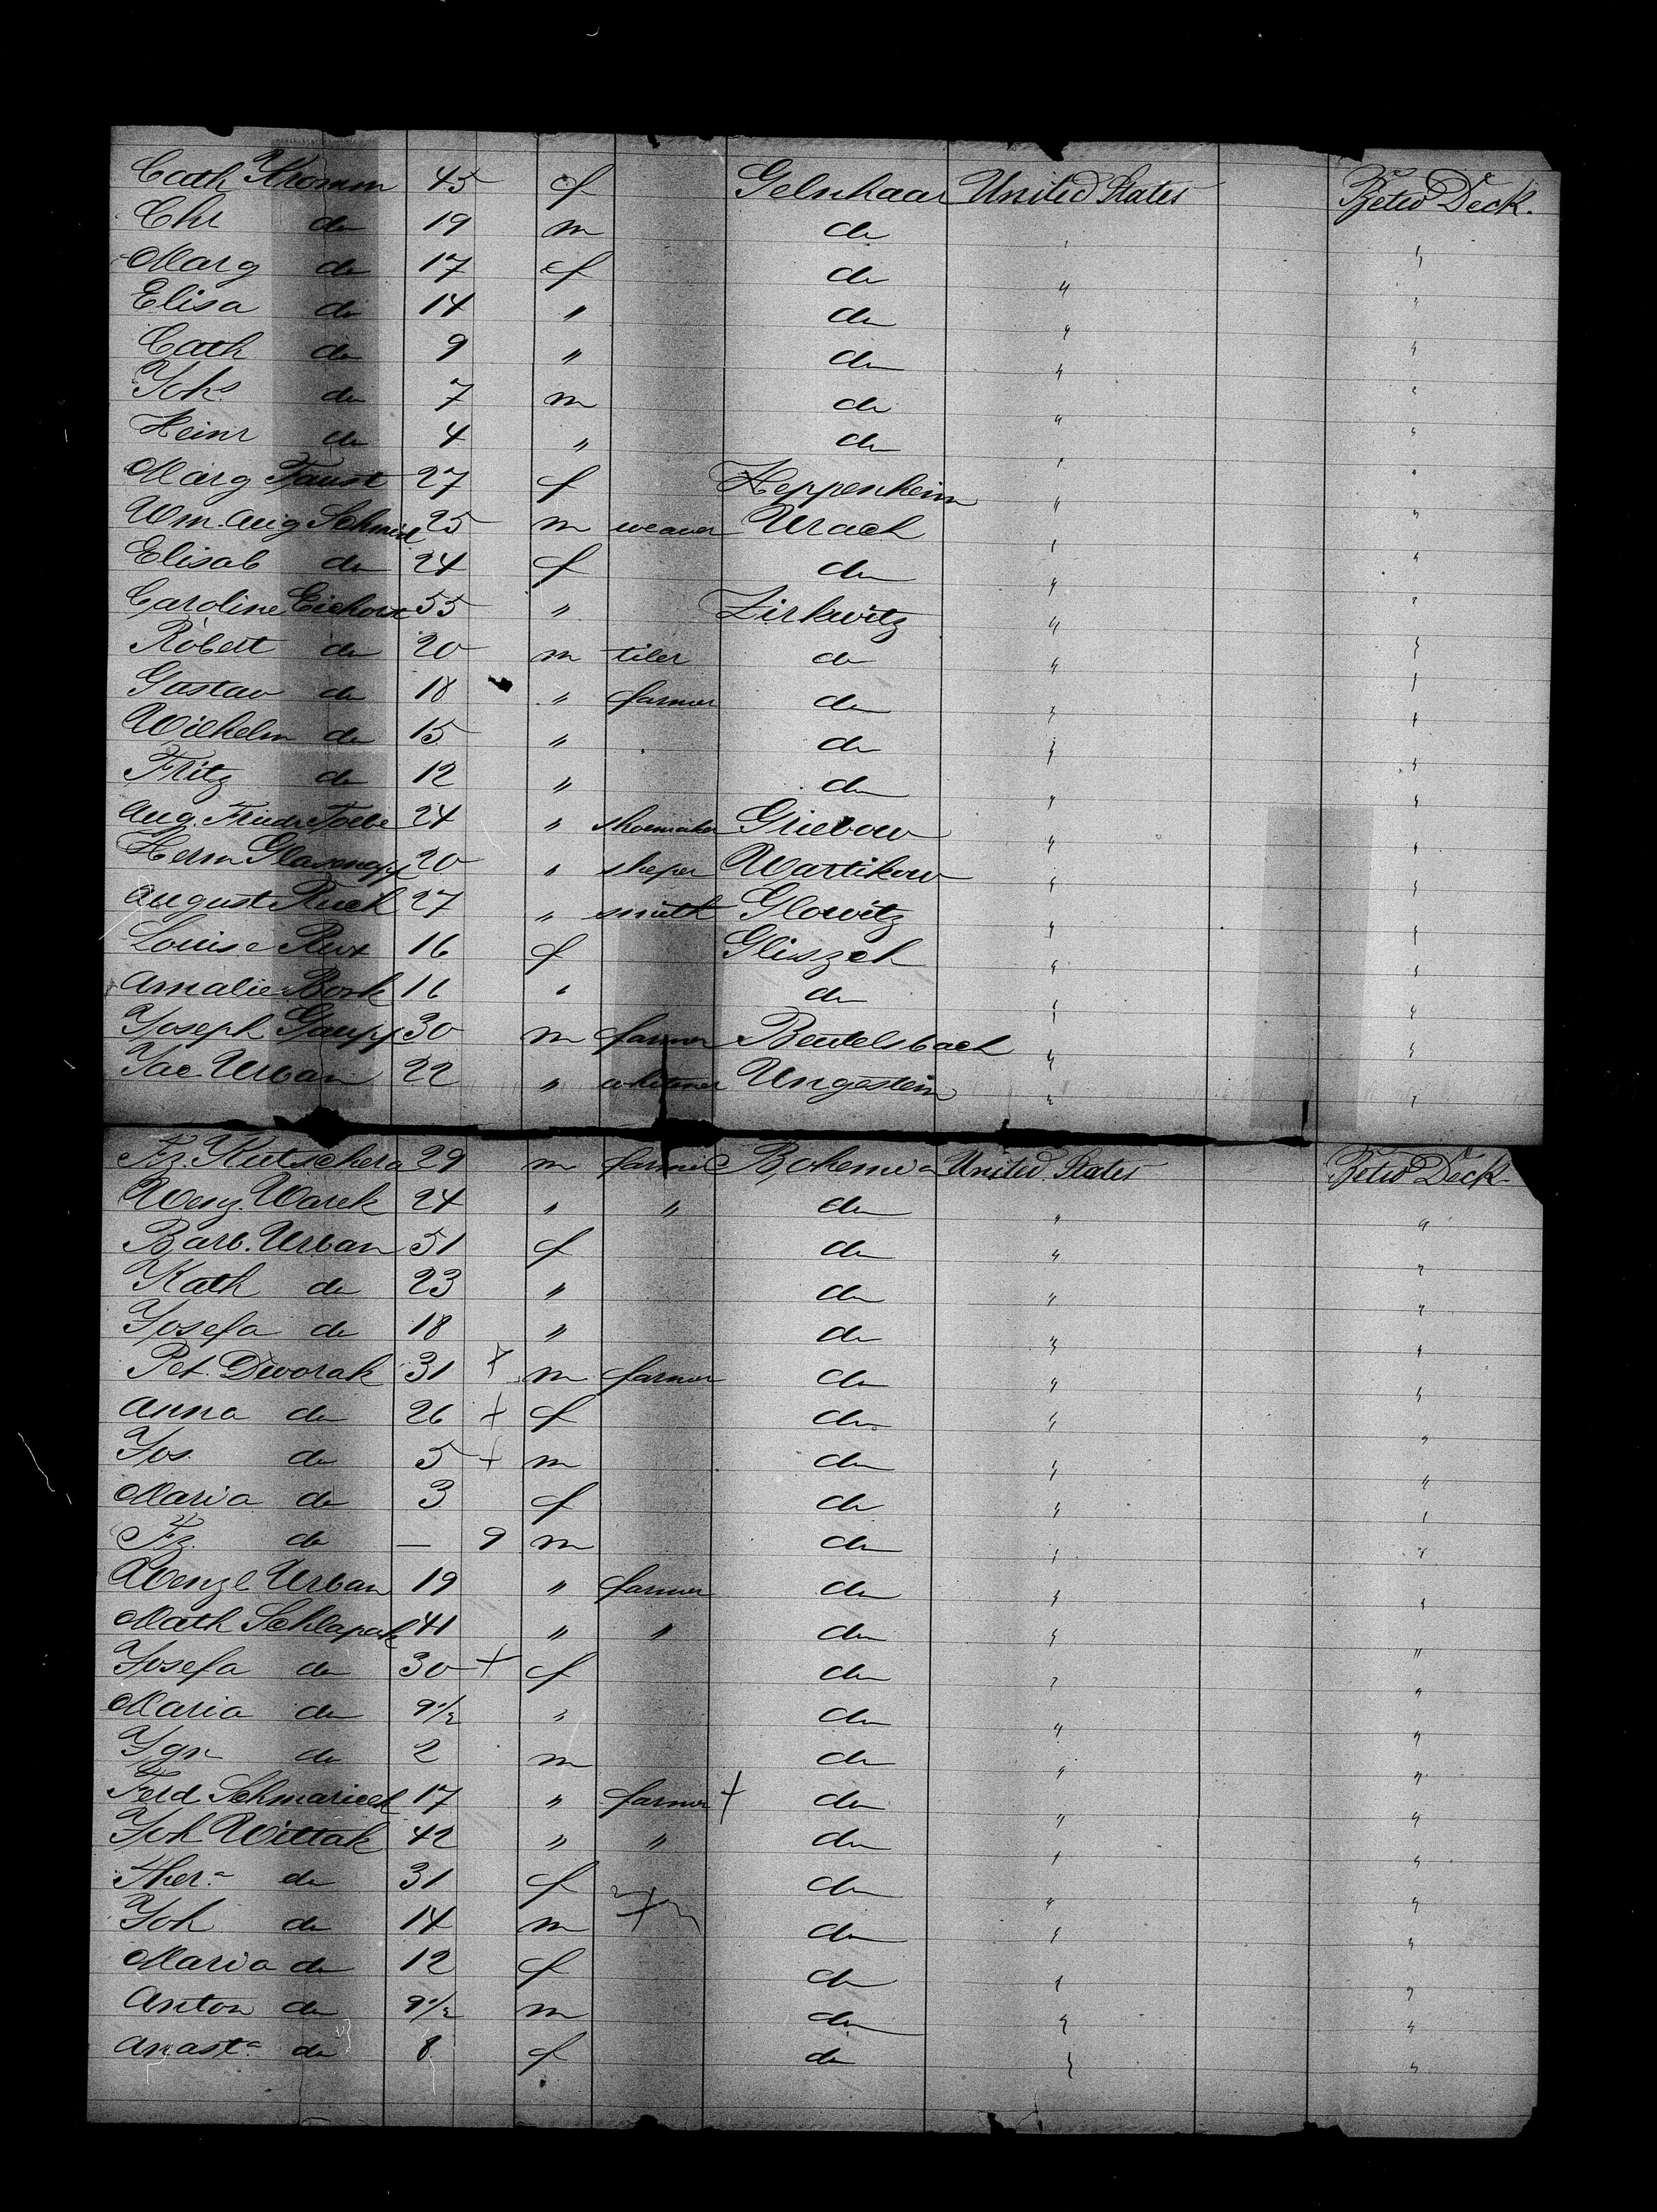 Cath Kromm 45 f Gelnhaar United States Betw Deck.
Chr do 19 m do "
Marg do 17 f do " "
Elisa do 14 " do " "
Cath do 9 " do " "
Johs do 7 m do " "
Heinr do 4 " do " "
Marg Faust 27 f Heppenheim " "
Wm. Aug Schmid 25 m weaver Urach " "
Elisab do 24 f do " "
Caroline Eichorst 55 " Zirkwitz " "
Robert do 20 m tiler do " "
Gustav do 18 " farmer do " "
Wilhelm do 15 " do " "
Fritz do 12 " do " "
Aug. Friedr 24 " shoemaker Griebow " "
Herm Glasenapp 20 " sheper Wartikow " "
August Ruch 27 " smith Glowitz " "
Louise Rux 16 f Gliszch " "
Amalie Bork 16 " do " "
Joseph Gaupp 30 m farmer Beutelsbach " "
Jac Urban 22 " Ungstein " "
Fz. Kutschera 29 m farmer Bohemia United States Betw Deck.
Wenz. Warek 24 " " do " "
Barb. Urban 51 f do " "
Kath do 23 " do " "
Josefa do 18 " do " "
Pet. Dworak 31 + m farmer do " "
Anna do 26 + f do " "
Jos. do 5 + m do " "
Maria do 3 f do " "
Fz. do — 9 m do " "
Wenzl Urban 19 " farmer do " "
Math Schlapak 41 " " do " "
Josefa do 30 + f do " "
Maria do 9 1/2 " do " "
Ign do 2 m do " "
Ferd Schmaricek 17 " farmer + do " "
Joh Wittak 42 " " do " "
Thera do 31 f do " "
Joh do 14 m do " "
Maria do 12 f do " "
Anton do 9 1/2 m do " "
Anasta do 8 f do " "